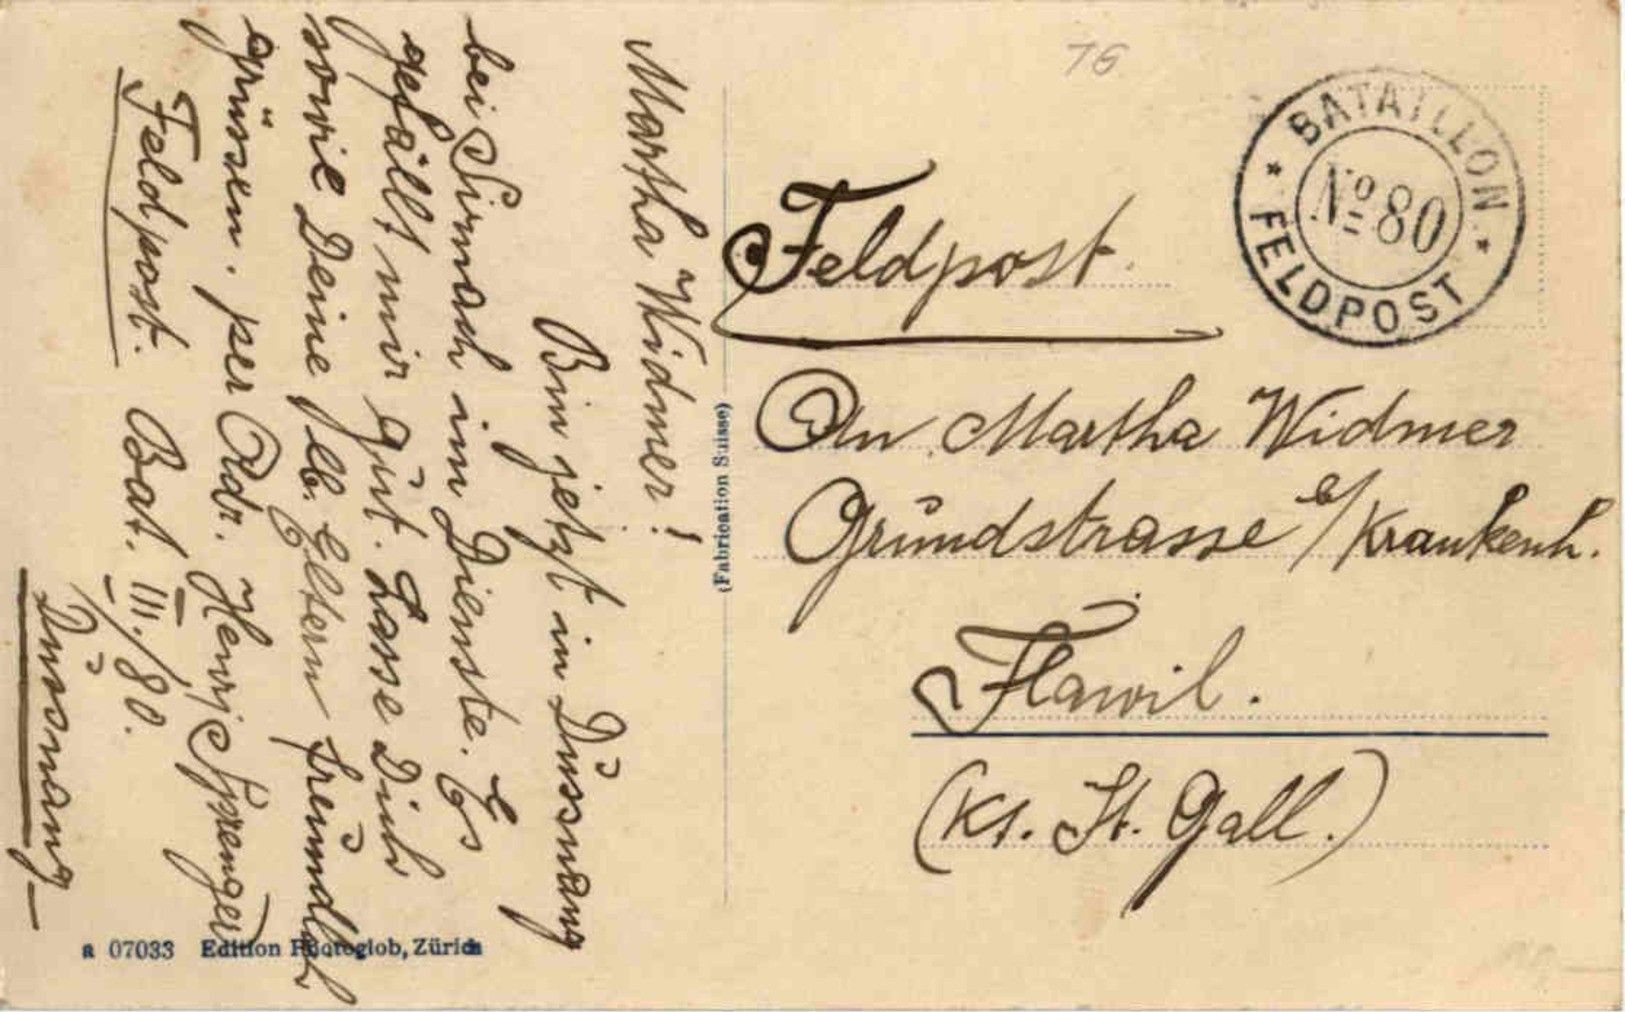 Martha Widmer!
Bin jetzt in Dussnang
bei Sirnach im Dienste. Es
gefällt mir gut. Lasse Dich
sowie Deine lb. Eltern freundlich
grüssen. per Adr. Henri Sprenger
Feldpost. Bat. III./80.
Dussnang
a 07033 Edition Photoglob, Zürich
(Fabrication Suisse)
76
BATAILLON
No 80
FELDPOST
Feldpost.
An Martha Widmer
Grundstrasse b/Krankenh.
Flawil.
(Kt. St. Gall.)